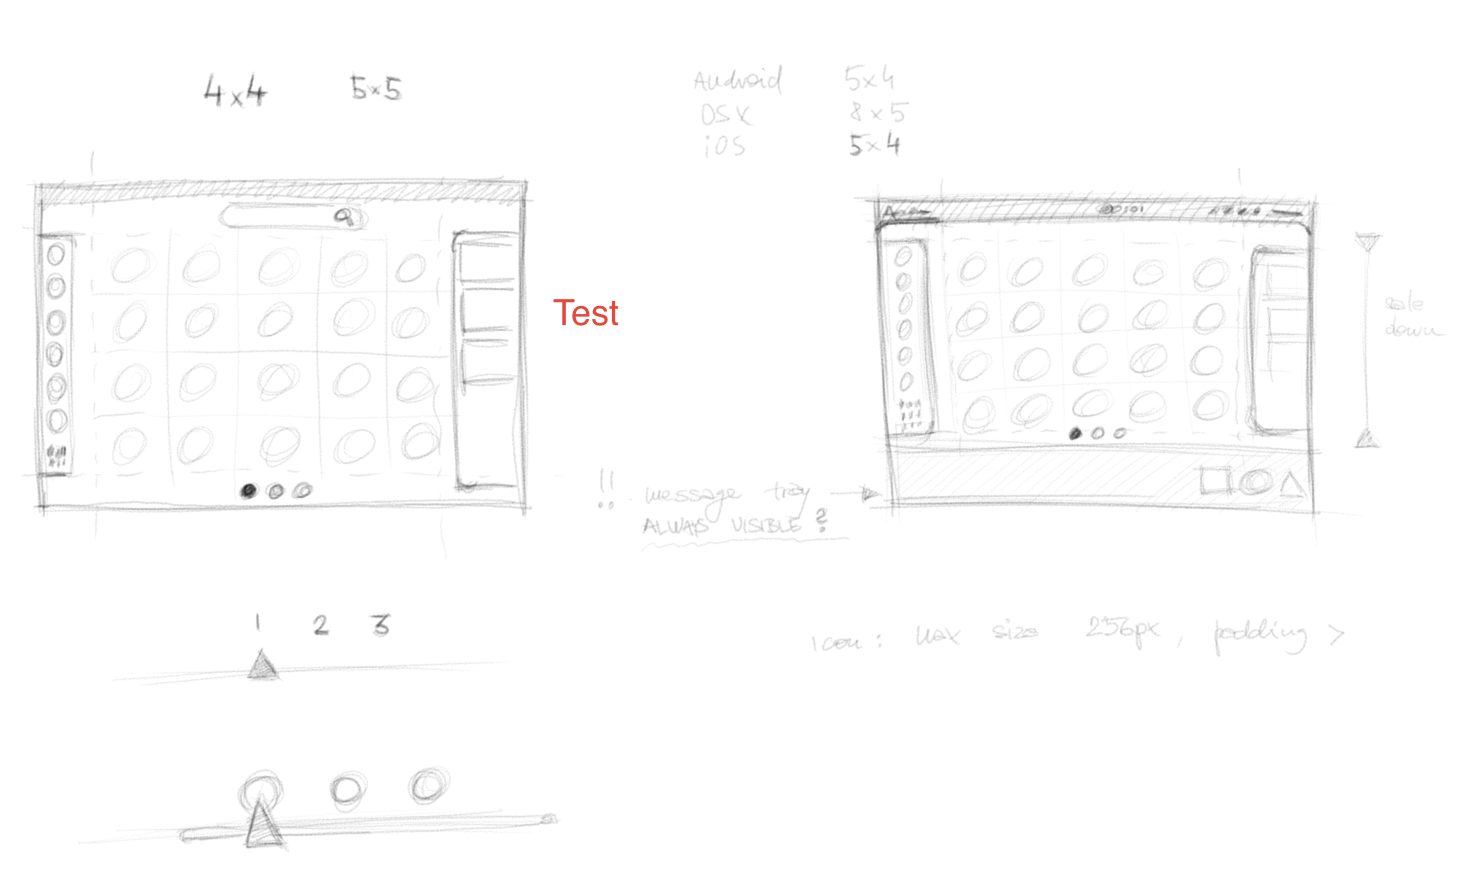 4x4 5x5
Android 5x4
OSX 8x5
iOS 5x4
Test
scale
down
!! message tray
ALWAYS VISIBLE?
1 2 3
icon: max size 256px, padding >